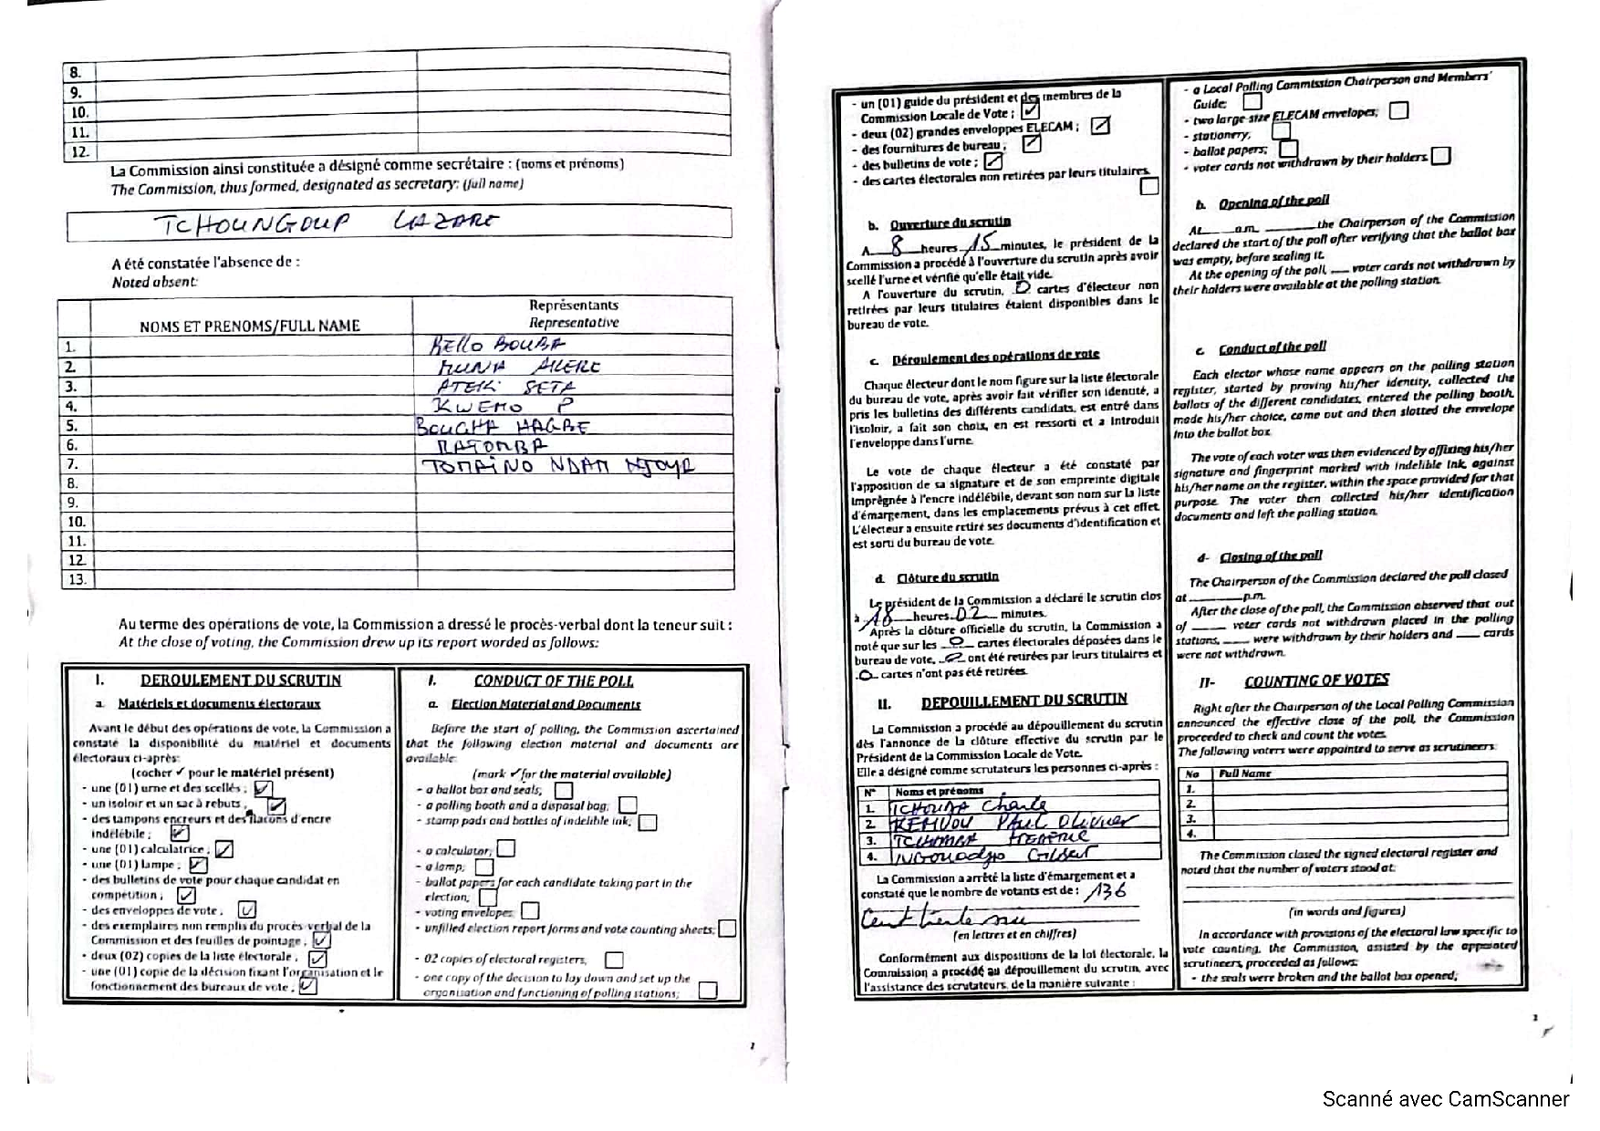 8.
9.
10.
11.
12.
La Commission ainsi constituée a désigné comme secrétaire : (noms et prénoms)
The Commission, thus formed, designated as secretary: (full name)
TCHOUNGOUP LAZARE
A été constatée l'absence de :
Noted absent:
NOMS ET PRENOMS/FULL NAME
Représentants
Representative
1. BELLO BOUBA
2. MUNA AKERE
3. ATEKI SETA
4. KWEMO P
5. BOUGHA HAGBE
6. MATOMBA
7. TOMAINO NDAM NJOYA
8.
9.
10.
11.
12.
13.
Au terme des opérations de vote, la Commission a dressé le procès-verbal dont la teneur suit :
At the close of voting, the Commission drew up its report worded as follows:
I. DEROULEMENT DU SCRUTIN
a. Matériels et documents électoraux
Avant le début des opérations de vote, la Commission a
constaté la disponibilité du matériel et documents
électoraux ci-après:
(cocher ✓ pour le matériel présent)
- une (01) urne et des scellés ; ✓
- un isoloir et un sac à rebuts ; ✓
- des tampons encreurs et des flacons d'encre
indélébile ; ✓
- une (01) calculatrice ; ✓
- une (01) lampe ; ✓
- des bulletins de vote pour chaque candidat en
compétition ; ✓
- des enveloppes de vote ; ✓
- des exemplaires non remplis du procès verbal de la
Commission et des feuilles de pointage ; ✓
- deux (02) copies de la liste électorale ; ✓
- une (01) copie de la décision fixant l'organisation et le
fonctionnement des bureaux de vote ; ✓
I. CONDUCT OF THE POLL
a. Election Material and Documents
Before the start of polling, the Commission ascertained
that the following election material and documents are
available:
(mark ✓ for the material available)
- a ballot box and seals;
- a polling booth and a disposal bag;
- stamp pads and bottles of indelible ink;
- a calculator;
- a lamp;
- ballot papers for each candidate taking part in the
election;
- voting envelopes;
- unfilled election report forms and vote counting sheets;
- 02 copies of electoral registers;
- one copy of the decision to lay down and set up the
organisation and functioning of polling stations;
2
- un (01) guide du président et des membres de la
Commission Locale de Vote ; ✓
- deux (02) grandes enveloppes ELECAM ; ✓
- des fournitures de bureau ; ✓
- des bulletins de vote ; ✓
- des cartes électorales non retirées par leurs titulaires
b. Ouverture du scrutin
A 8 heures 15 minutes, le président de la
Commission a procédé à l'ouverture du scrutin après avoir
scellé l'urne et vérifié qu'elle était vide.
A l'ouverture du scrutin, 0 cartes d'électeur non
retirées par leurs titulaires étaient disponibles dans le
bureau de vote.
c. Déroulement des opérations de vote
Chaque électeur dont le nom figure sur la liste électorale
du bureau de vote, après avoir fait vérifier son identité, a
pris les bulletins des différents candidats, est entré dans
l'isoloir, a fait son choix, en est ressorti et a introduit
l'enveloppe dans l'urne.
Le vote de chaque électeur a été constaté par
l'apposition de sa signature et de son empreinte digitale
imprégnée à l'encre indélébile, devant son nom sur la liste
d'émargement, dans les emplacements prévus à cet effet.
L'électeur a ensuite retiré ses documents d'identification et
est sorti du bureau de vote.
d. Clôture du scrutin
Le président de la Commission a déclaré le scrutin clos
à 18 heures 02 minutes.
Après la clôture officielle du scrutin, la Commission a
noté que sur les 0 cartes électorales déposées dans le
bureau de vote, 0 ont été retirées par leurs titulaires et
0 cartes n'ont pas été retirées.
II. DEPOUILLEMENT DU SCRUTIN
La Commission a procédé au dépouillement du scrutin
dès l'annonce de la clôture effective du scrutin par le
Président de la Commission Locale de Vote.
Elle a désigné comme scrutateurs les personnes ci-après :
N° Noms et prénoms
1. TCHOUDA Charle
2. KEMVOU PAUL Olivier
3. TCHOMBA
4. NGOUADJO Gilbert
La Commission a arrêté la liste d'émargement et a
constaté que le nombre de votants est de : 136
Cent trente six
(en lettres et en chiffres)
Conformément aux dispositions de la loi électorale, la
Commission a procédé au dépouillement du scrutin, avec
l'assistance des scrutateurs, de la manière suivante :
- a Local Polling Commission Chairperson and Members'
Guide;
- two large-size ELECAM envelopes;
- stationery;
- ballot papers;
- voter cards not withdrawn by their holders
b. Opening of the poll
At ____ a.m. ____ the Chairperson of the Commission
declared the start of the poll after verifying that the ballot box
was empty, before sealing it.
At the opening of the poll, ___ voter cards not withdrawn by
their holders were available at the polling station.
c. Conduct of the poll
Each elector whose name appears on the polling station
register, started by proving his/her identity, collected the
ballots of the different candidates, entered the polling booth,
made his/her choice, came out and then slotted the envelope
into the ballot box.
The vote of each voter was then evidenced by affixing his/her
signature and fingerprint marked with indelible ink, against
his/her name on the register, within the space provided for that
purpose. The voter then collected his/her identification
documents and left the polling station.
d- Closing of the poll
The Chairperson of the Commission declared the poll closed
at ____ p.m.
After the close of the poll, the Commission observed that out
of ____ voter cards not withdrawn placed in the polling
stations, ____ were withdrawn by their holders and ____ cards
were not withdrawn.
II- COUNTING OF VOTES
Right after the Chairperson of the Local Polling Commission
announced the effective close of the poll, the Commission
proceeded to check and count the votes.
The following voters were appointed to serve as scrutineers:
No Full Name
1.
2.
3.
4.
The Commission closed the signed electoral register and
noted that the number of voters stood at:
(in words and figures)
In accordance with provisions of the electoral law specific to
vote counting, the Commission, assisted by the appointed
scrutineers, proceeded as follows:
- the seals were broken and the ballot box opened;
3
Scanné avec CamScanner